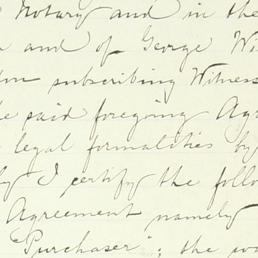 Notary and in the
and of George Wi
subscribing Witness
said foregoing Agr
legal formalities by
I certify the follo
Agreement namely
Purchaser; the wo